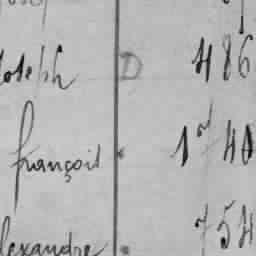 Joseph D 486
françois 1740
Alexandre 754